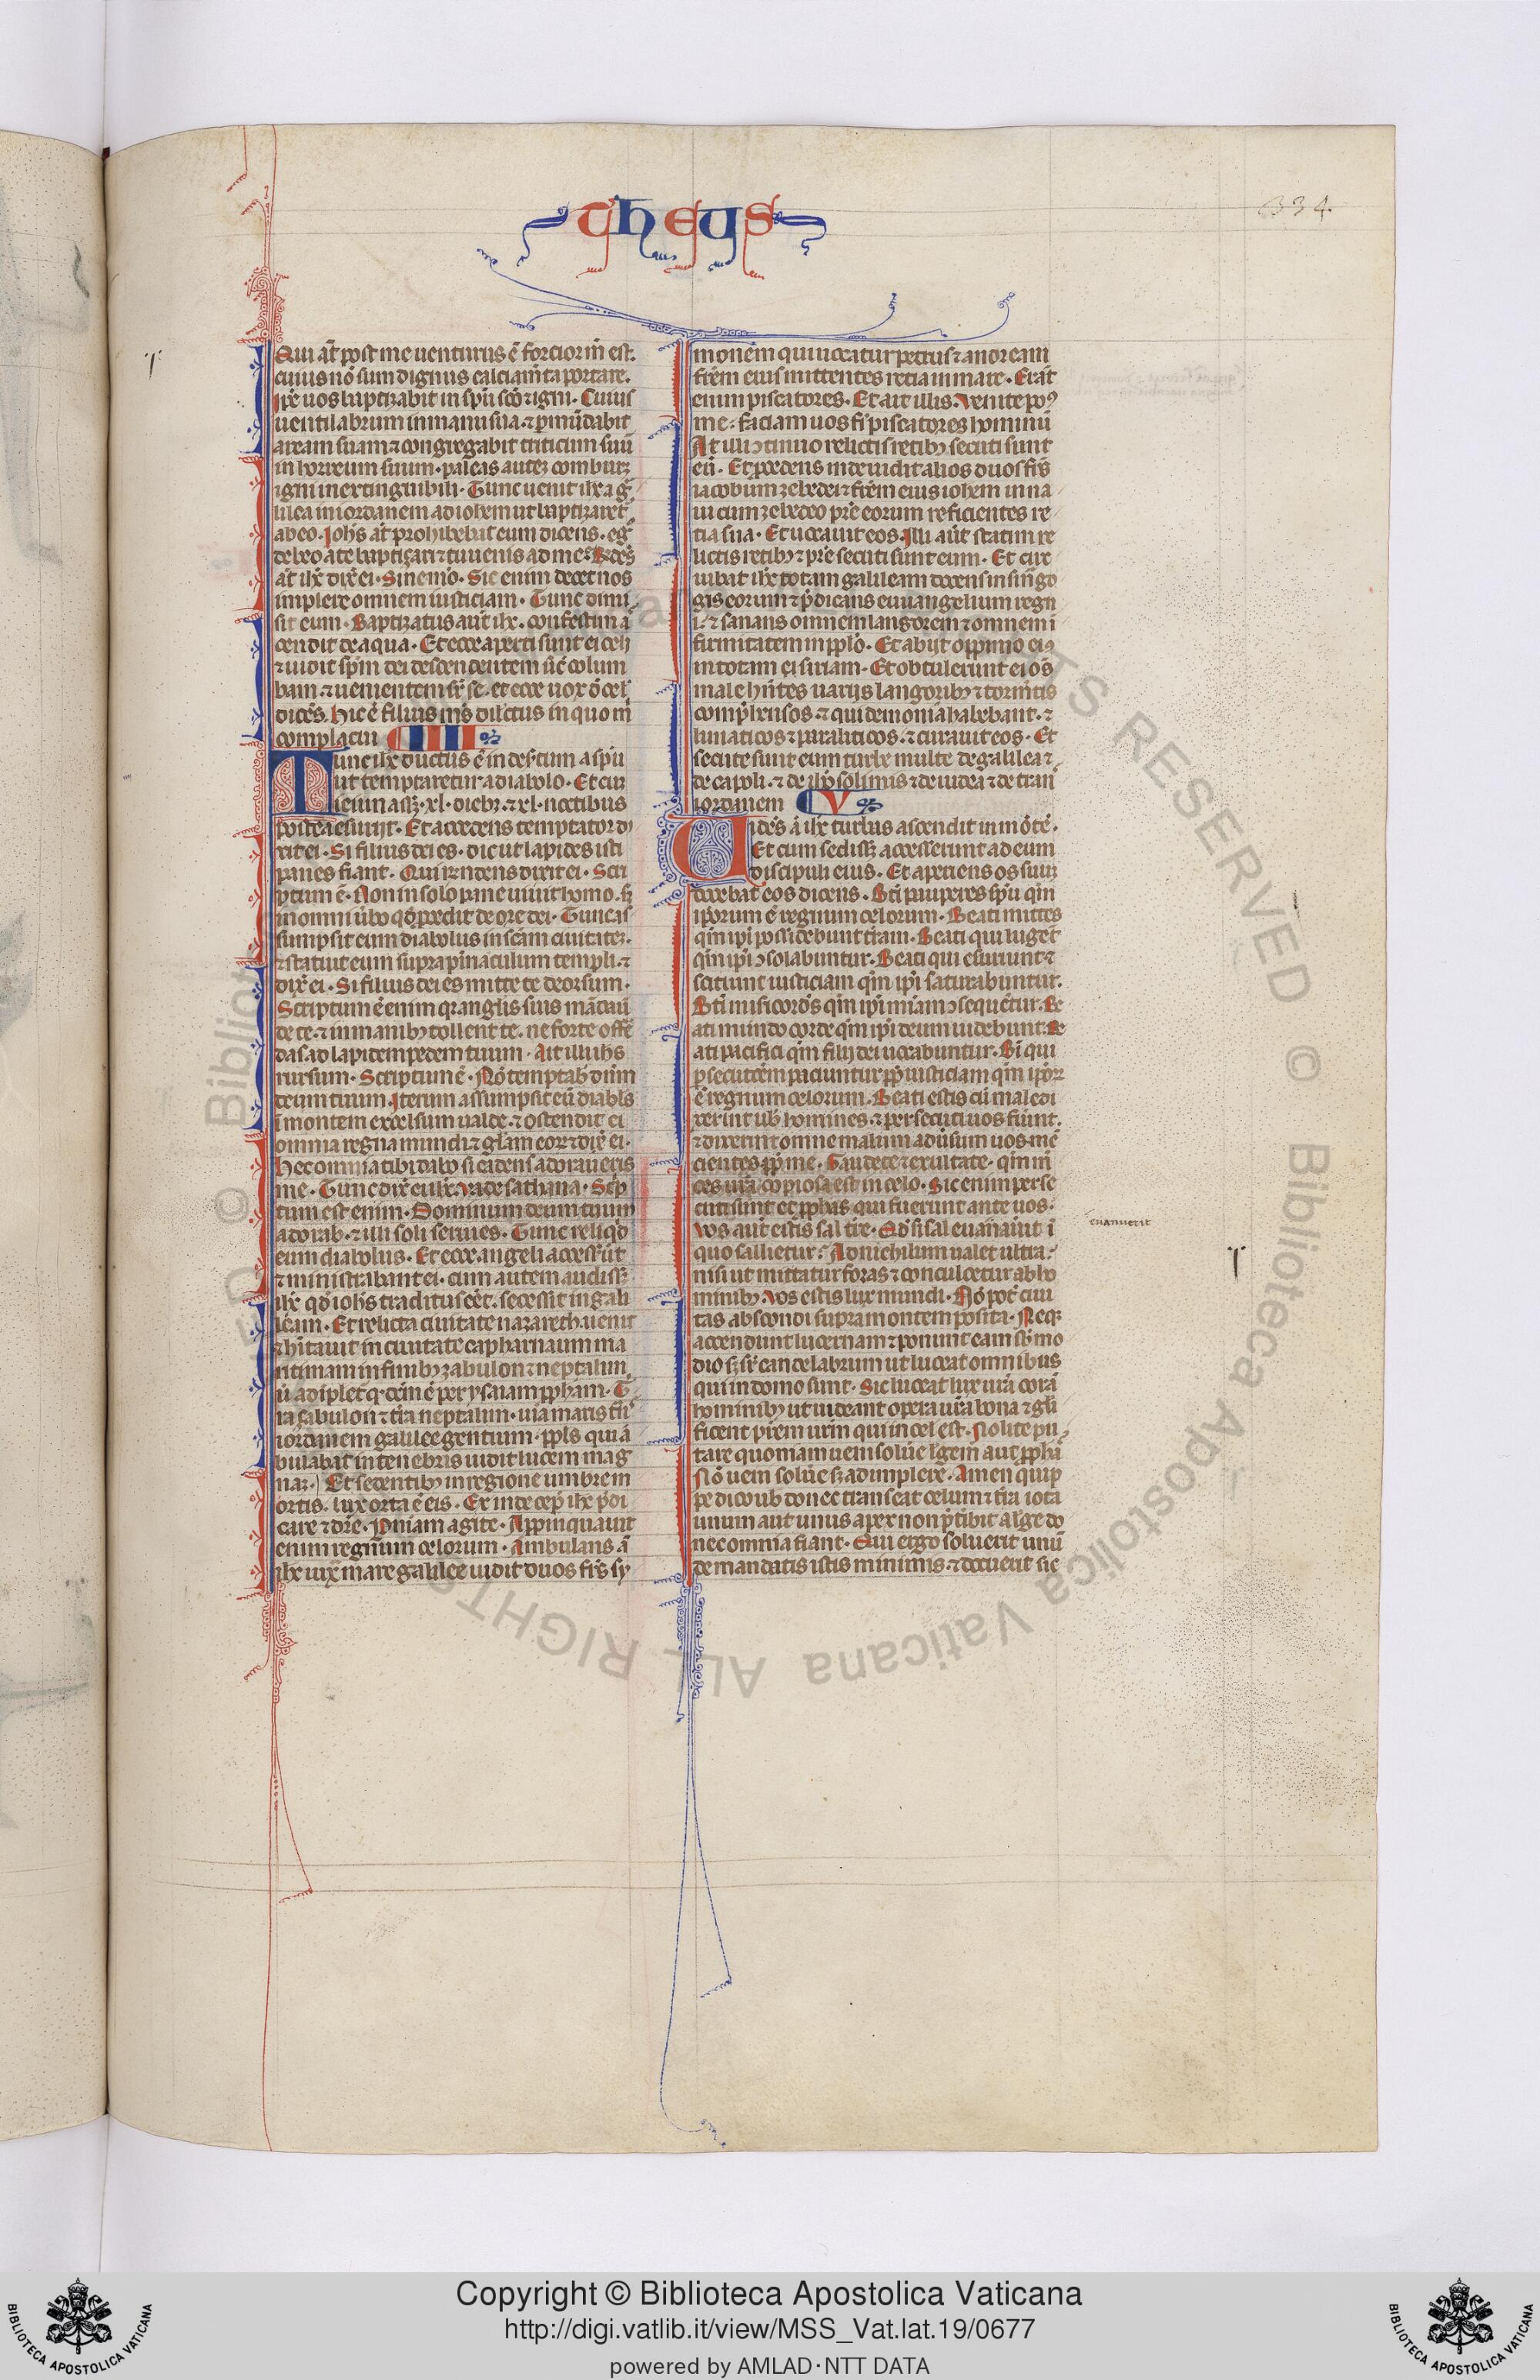 theys
334
Qui at̄ post me uenturus ē forcior m̄ est.
cuius nō sum dignus calciam̄ta portare.
ip̄e uos baptizabit in sp̄u sc̄o ⁊ igni. Cuius
uentilabrum in manu sua. ⁊ ꝑmūdabit
aream suam ⁊ congregabit triticum suū
in horreum suum. paleas autem comburꝫ
igni inextinguibili. Tunc uenit ih̄c a ga
lilea in iordanem ad ioh̄em ut baptizaret̄
ab eo. Joh̄s at̄ prohibebat eum dicens. eg̊
debeo a te baptizari ⁊ tu uenis ad me.
at̄ ih̄c dix̄ ei. Sine m̊o. Sic enim decet nos
implere omnem iusticiam. Tunc dimi
sit eum. Baptizatus aut̄ ih̄c. confestim a
cendit de aqua. Et ecce aperti sunt ei celi
⁊ uidit sp̄m dei descendentem sic̄ colum
bam. ⁊ uenientem sr̄ se. et ecce uox d̄ cel
dicēs. Hic ē filius m̄s dil̄ctus in quo m̄
complacui IIII
Tunc ih̄c ductus ē in des̄tum a sp̄u
ut temptaretur a diabolo. Et cuꝫ
ieiunassꝫ .xl. diebꝫ. ⁊ xl. noctibus
postea esurijt. Et accedens temptator di
xit ei. Si filius dei es. dic ut lapides isti
panes fiant. Qui r̄ndens dixit ei. Scri
ptum ē. Non in solo pane uiuit homo. sꝫ
in omni ūbo qd̄ ꝓcedit de ore dei. Tunc as
sumpsit eum diabolus in sc̄am ciuitateꝫ.
⁊ statuit eum supra pinaculum templi. ⁊
dix̄ ei. Si filius dei es mitte te deorsum.
Scriptum ē enim qꝛ anglis suis mādaū
de te. ⁊ in manibꝫ tollent te. ne forte offē
das ad lapidem pedem tuum. Ait illi ih̄s
rursum. Scriptum ē. Nō temptab dn̄m
deum tuum. Iterum assumpsit eū diabl̄s
ī montem excelsum ualde. ⁊ ostendit ei
omnia regna mundi ⁊ gl̄am eoꝝ ⁊ dix̄ ei.
Hec omnia tibi dabo si cadens adoraueris
me. Tunc dix̄ ei ih̄c. Vade sathana. Scp̄
tum est enim. Dominum deum tuum
adorab. ⁊ illi soli seruies. Tunc reliqd̄
eum diabolus. Et ecce angeli accesser̄ūt
⁊ ministrabant ei. cum autem audissꝫ
ih̄c qd̄ ioh̄s traditus ēet. secessit in gali
leam. Et relicta ciuitate nazareth. uenit
⁊ h̄itauit in ciuitate capharnaum ma
ritimam in finibꝫ zabulon ⁊ neptalim
ū adiplet̄ q. dcm̄ ē per ysaiam ꝓpham. T
ra zabulon ⁊ tr̄a neptalim. uia maris tn̄s
iordanem galilee gentium. ppl̄s qui ā
bulabat in tenebris uidit lucem mag
naꝫ. Et sedentibꝫ in regione umbre m
ortis. lux orta ē eis. Ex inde cep̄ ih̄c p̄di
care ⁊ dr̄e. Pn̄iam agite. Appinquauit
enim regnum celorum. Ambulans ā
ih̄c iux̄ mare galilee uidit duos fr̄s sy
monem qui uocatur petrus ⁊ andream
fr̄em eius mittentes recia in mare. Erāt
enim piscatores. Et ait illis. Venite poꝰ
me: faciam uos fi. piscatores hominū
At illi ↄtinuo relictis retibꝫ secuti sunt
eū. Et ꝓcedens inde uidit alios duos fr̄s
iacobum zebedei ⁊ fr̄em eius ioh̄em in na
ui cum zebedeo pr̄e eorum reficientes re
tia sua. Et uocauit eos. Illi aūt statim re
lictis retibꝫ ⁊ pr̄e secuti sunt eum. Et cir
uibat ih̄c totam galileam docens in sinago
gis eorum ⁊ p̄dicans euuangelium regn
i. ⁊ sanans omnem langorem ⁊ omnem i
firmitatem in pplo. Et abijt oppinio eiꝰ
in totam ei siriam. Et obtulerunt ei oēs
male hn̄tes uarijs langoribꝫ ⁊ torm̄tis
compr̄hensos. ⁊ qui demonia habebant. ⁊
lunaticos ⁊ paraliticos. ⁊ curauit eos. Et
secute sunt eum turbe multe de galilea ⁊
de capoli. ⁊ de ih̄rosolimis ⁊ de iudea ⁊ de tran
iordanem V
Uidēs ā ih̄c turbas ascendit in mōtē.
Et cum sedissꝫ accesserunt ad eum
discipuli eius. Et aperiens os suuꝫ
docebat eos dicens. Bt̄i pauperes sp̄u qm̄
ip̄orum ē regnum celorum. Beati mittes
qm̄ ip̄i possidebunt tr̄am. Beati qui lugēt
qm̄ ip̄i ↄsolabuntur. Beati qui esuriunt ⁊
sciciunt iusticiam qm̄ ip̄i saturabuntur.
Bt̄i misicordēs qm̄ ip̄i mīam ↄsequētur. Be
ati mūndo corde qm̄ ip̄i deum uidebunt. Be
ati pacifici qm̄ filij dei uocabuntur. Bt̄i qui
ꝑsecutōem paciuntur ꝓp̄ iusticiam qm̄ ip̄oꝝ
ē regnum celorum. Beati estis cū maledi
xerint uob homines. ⁊ persecuti uos fuūnt.
⁊ dixerint omne malum adūsum uos mē
cientes ꝓp̄ me. Gaudete ⁊ exultate. qm̄ m̄
ces ur̄a copiosa est in celo. Sic enim perse
cuti sunt et ꝓphās qui fuerunt ante uos.
Vos aūt estis sal tr̄e. Qd̄ si sal euanauit ī
quo sallietur? Ad nichilum ualet ultra.
nisi ut mittatur foras ⁊ conculcetur ab ho
minibꝫ. Vos estis lux mundi. Nō pot̄ ciui
tas abscondi supra montem posita. Neqꝫ
accendunt lucernam ⁊ ponunt eam sb̄ mo
dio sꝫ sr̄ candelabrum ut luceat omnibus
qui in domo sunt. Sic luceat lux ur̄a corā
hominibꝫ ut uideant opera ur̄a bona ⁊ glī
ficent p̄rem ur̄m qui in cel est. Nolite pu
tare quoniam ueni solūe lēgem aut ꝓphās
Nō ueni solūe sꝫ adimplere. Amen quip
pe dico uob donec transeat celum ⁊ tr̄a iota
unum aut unus apex non p̄ribit a lege do
nec omnia fiant. Qui ergo soluerit unū
de mandatis istis minimis. ⁊ docuerit sic
euanuerit
© Biblioteca Apostolica Vaticana ALL RIGHTS RESERVED
Copyright © Biblioteca Apostolica Vaticana
http://digi.vatlib.it/view/MSS_Vat.lat.19/0677
powered by AMLAD·NTT DATA
BIBLIOTECA APOSTOLICA VATICANA
BIBLIOTECA APOSTOLICA VATICANA